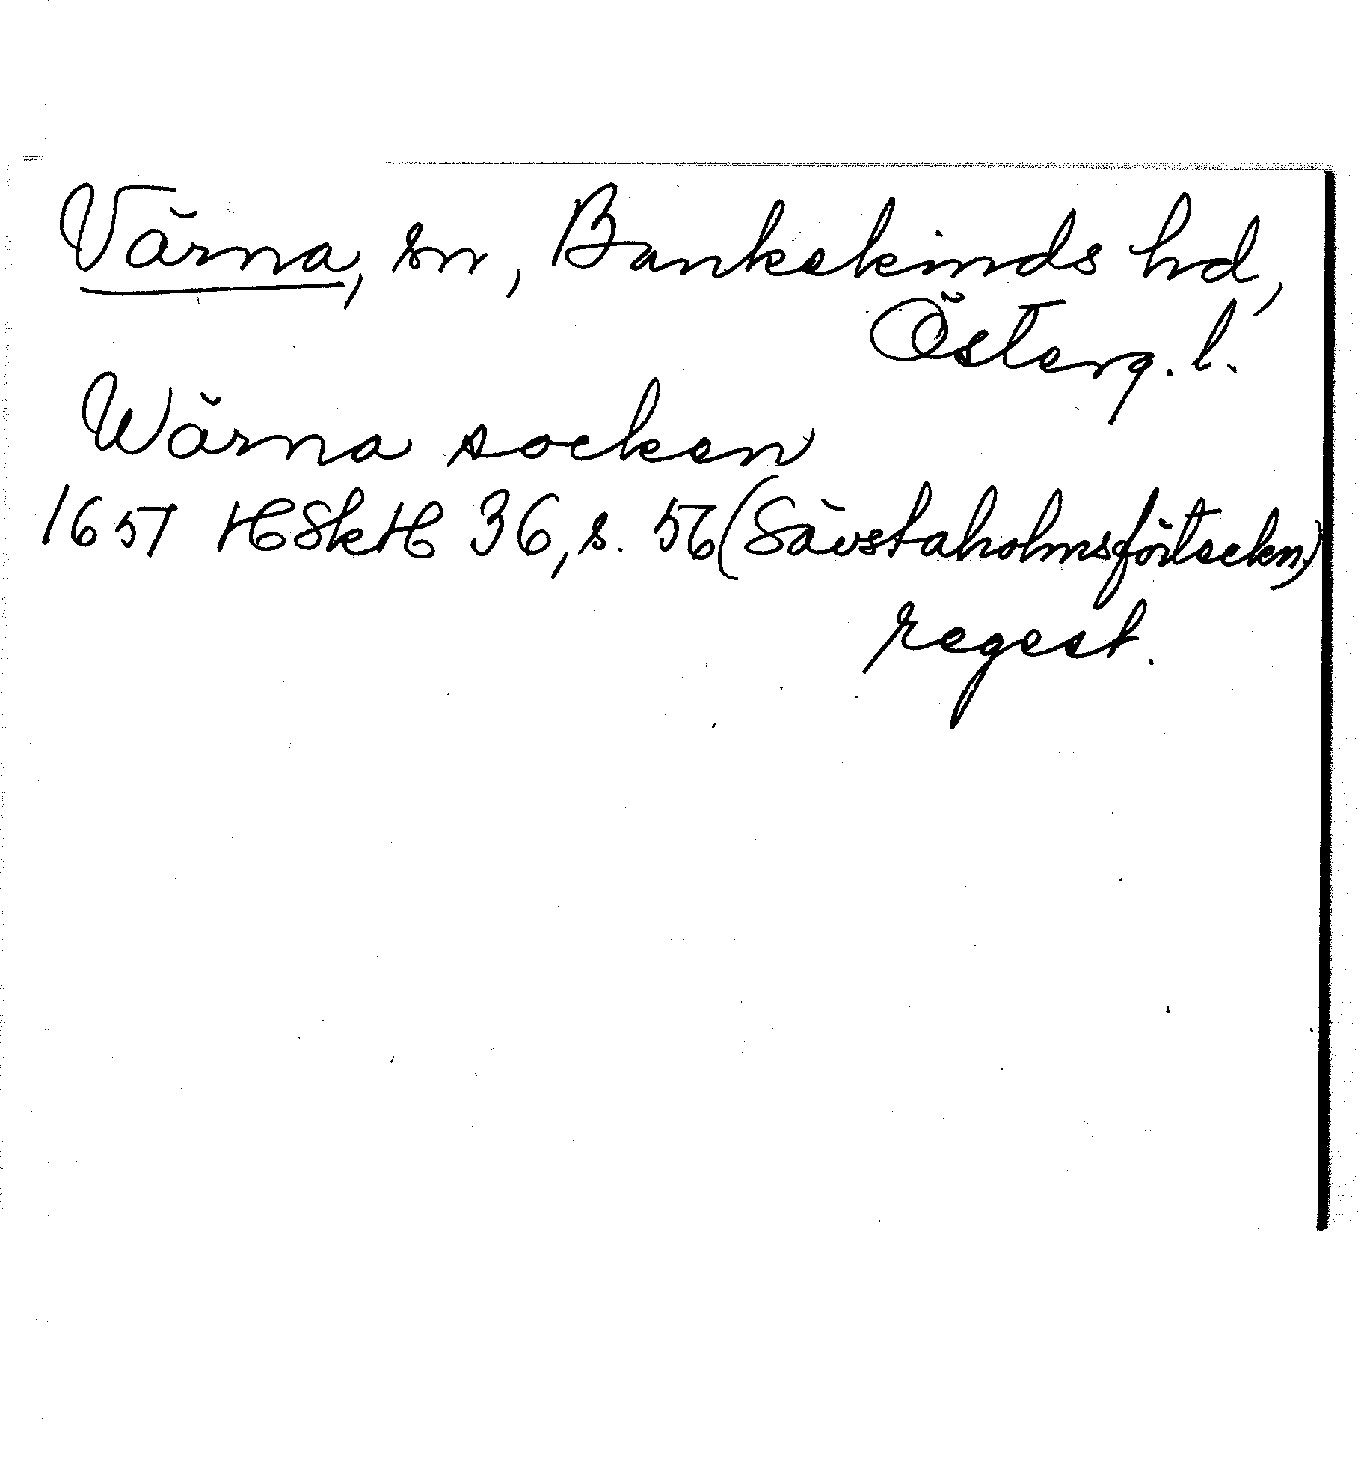 Värna, sn, Bankekinds hd,
Österg. l.
Wärna socken
1657 HSkH 36, s. 56 (Sävstaholmsförteckn.)
regest.